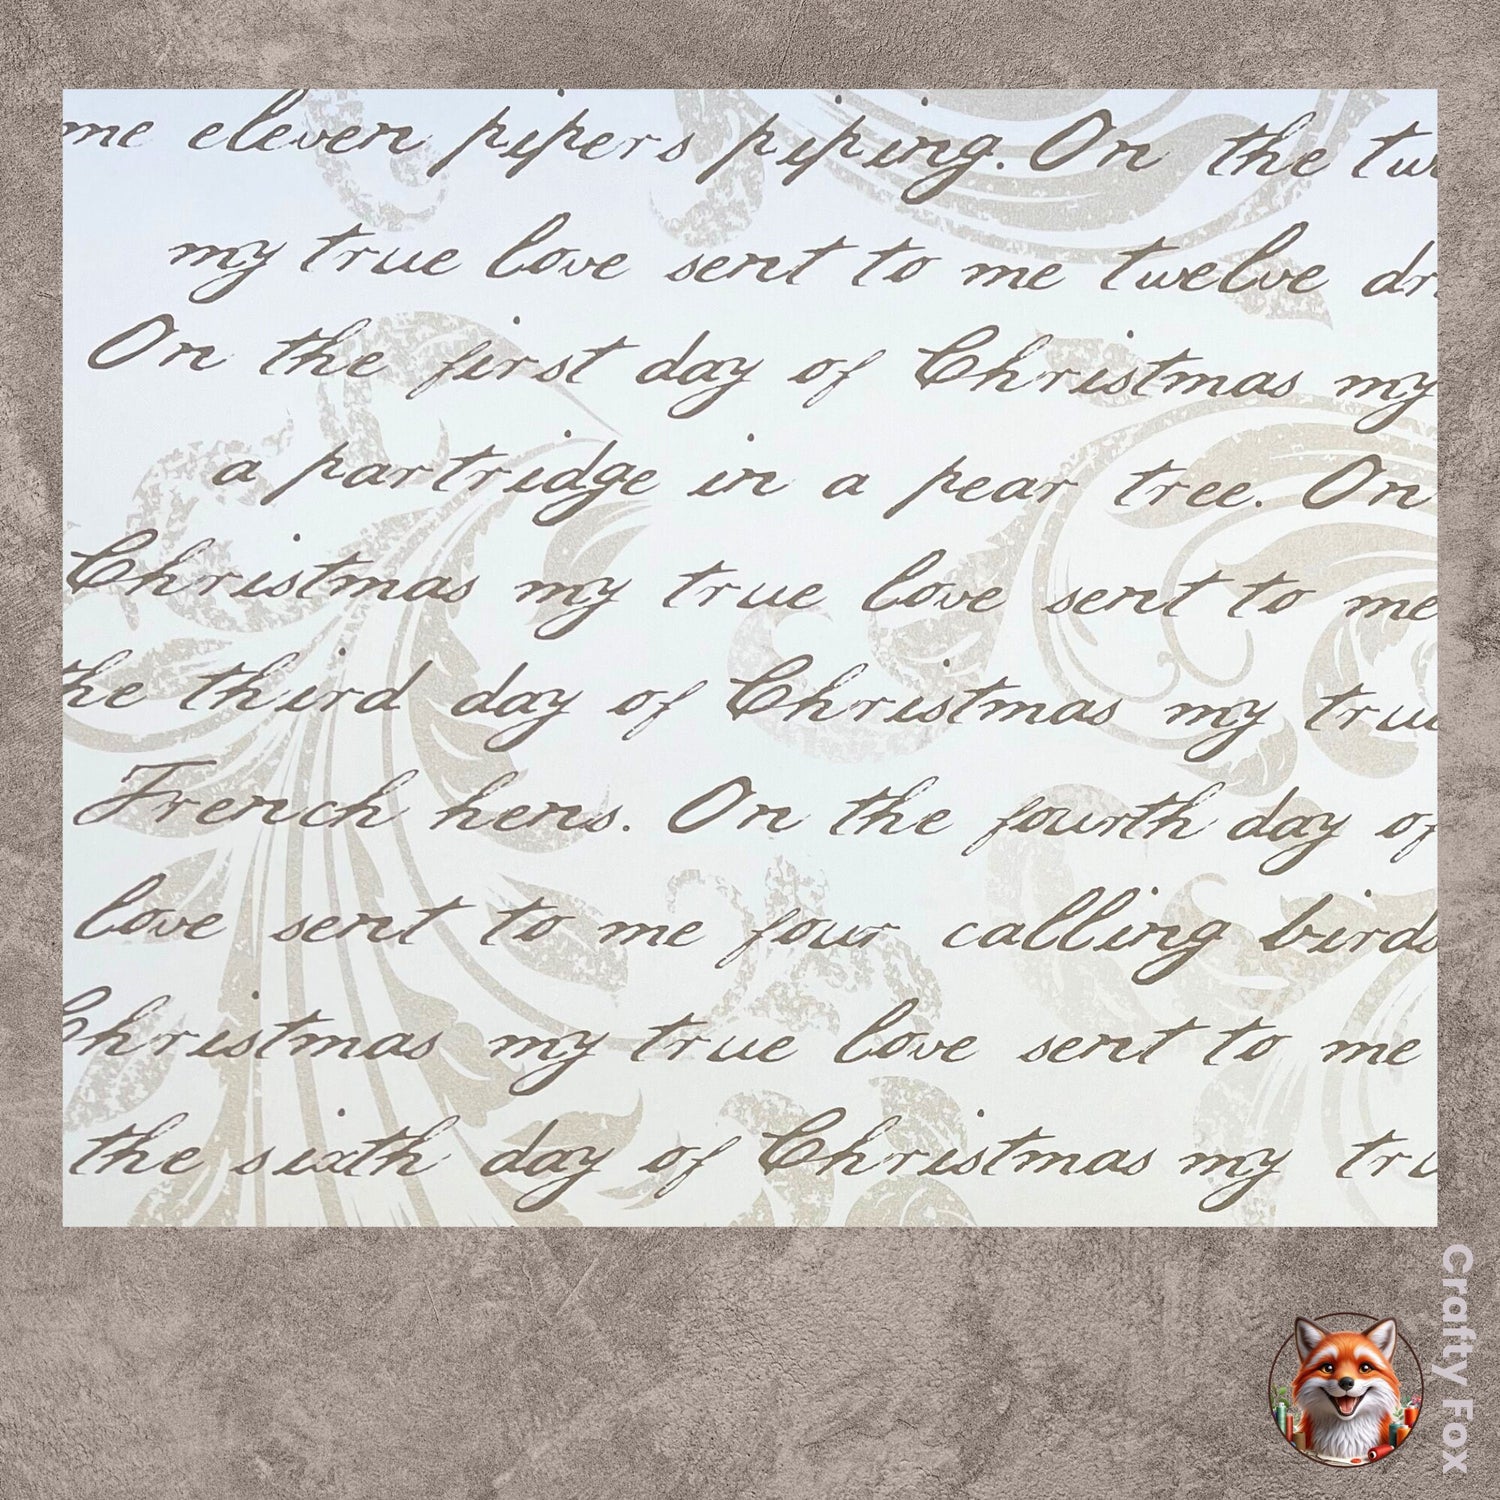 me eleven pipers piping. On the tw
my true love sent to me twelve dr
On the first day of Christmas my
a partridge in a pear tree. On
Christmas my true love sent to me
the third day of Christmas my true
French hens. On the fourth day of
love sent to me four calling birds
Christmas my true love sent to me
the sixth day of Christmas my tru
Crafty Fox